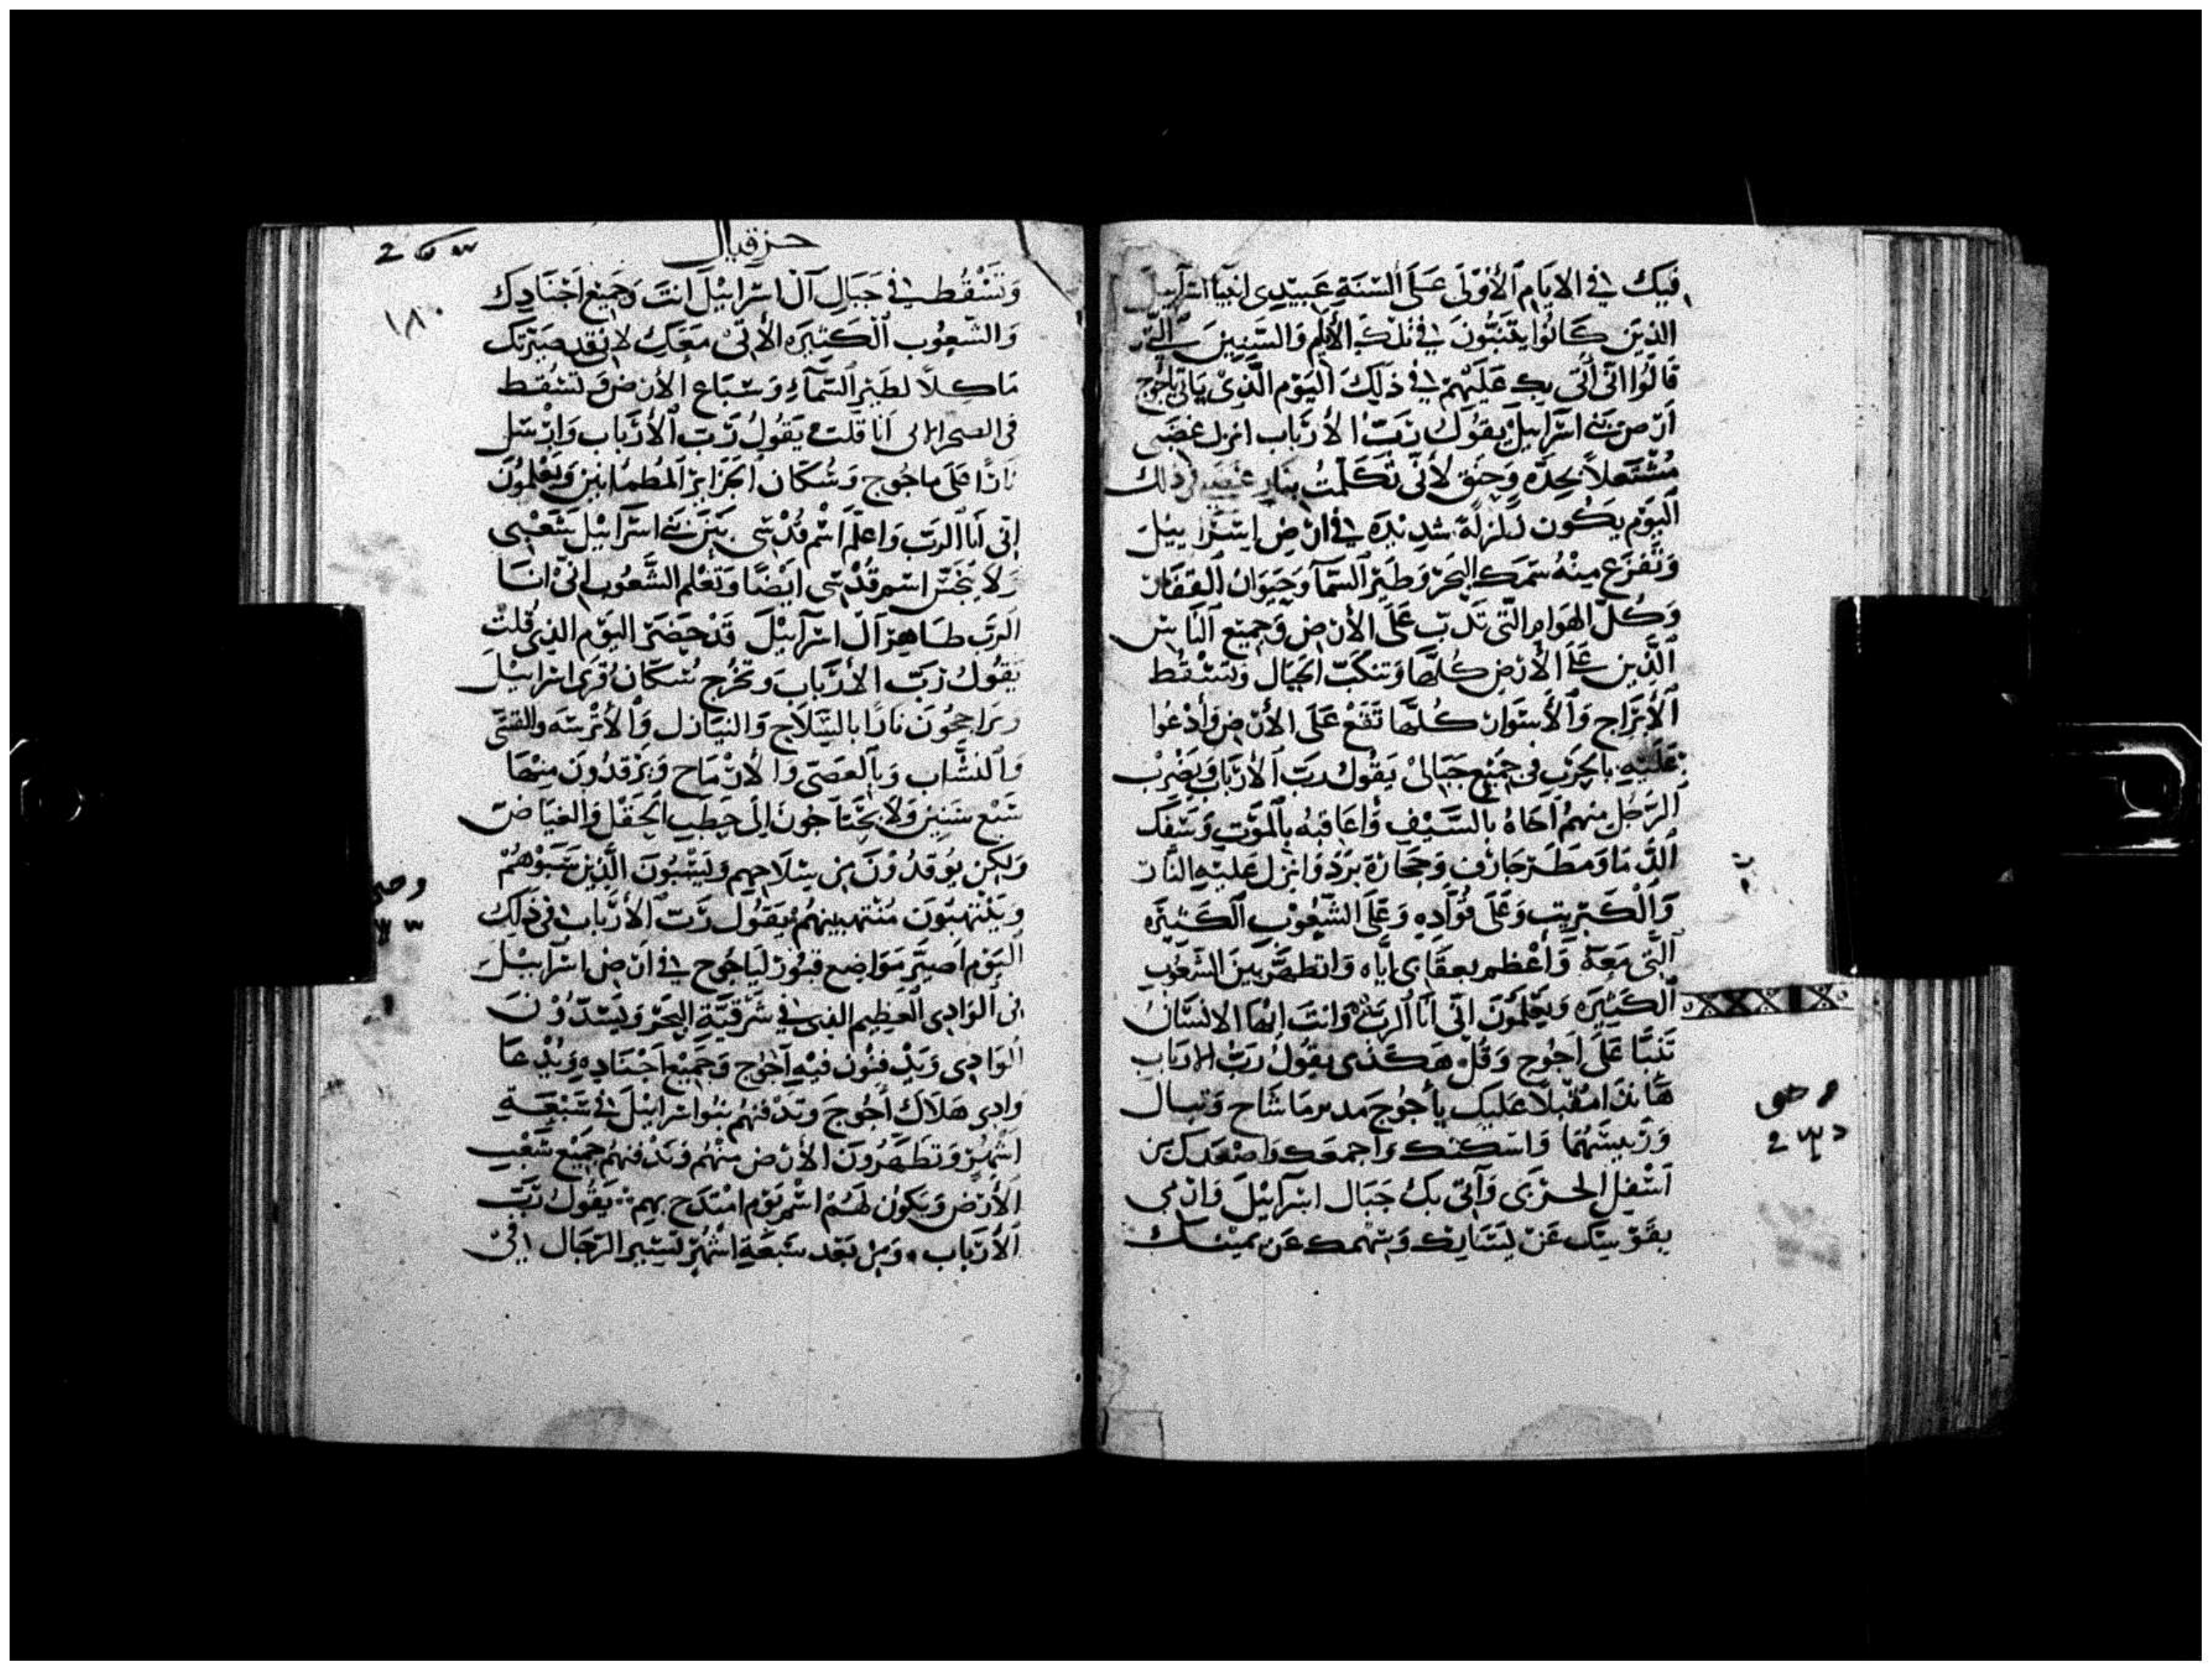 فيك في الايام الأولى على ألسنة عبيدي انبيآ اسرآييل
الذين كانوا يتنبّون في تلك الأيام والسنين
قالوا اني آتي بك عليهم في ذلك اليوم الذي ياتي ياجوج
ارض بني اسرآييل يقول ربّ الأرباب انزل غضبي
مشتعلاً بحدّه وحنق لأنّي تكلّمت بنار غضبي في ذلك
اليوم يكون زلزلة شديدة في ارض اسرآييل
وتفزع منه سمك البحر وطير السمآ وحيوان القفار
وكلّ الهوام التي تدبّ على الأرض وجميع الناس
الذين على الأرض كلها وتنكبّ الجبال وتسقط
الأبراج والأسوار كلها تقع على الأرض وأدعوا
عليه بالحرب في جميع جبالي يقول ربّ الأرباب ويضرب
الرجل منهم أخاه بالسيف وأعاقبه بالموت وسفك
الدّما ومطر جارف وحجارة برد وانزل عليه النار
والكبريت وعلى فؤاده وعلى الشعوب الكثيره
التي معه وأعظم بعقابي اياه واتطهر بين الشعوب
الكثيره ويعلمون اني انا الرب وانت ايها الانسان
تنبّا على اجوج وقل هكذى يقول ربّ الارباب
هانذا مقبلاً عليك يأجوج مدبر ماشاح وتبال
ورييسهما واسكنك واجمعك واصعدك من
اسفل الجربي وآتي بك جبال اسرآييل وارمي
بقوسك عن يسارك وسهمك عن يمينك
حزقيال
١٨٠
وتسقط في جبال آل اسراييل انت وجميع اجنادك
والشعوب الكثيره الأتي معك لاني قد صيرتك
ماكلاً لطير السمآء وسباع الأرض وتسقط
في الصحراء اني انا قلت يقول ربّ الأرباب وارسل
نارًا على ماجوج وسكان الجزاير المطمانين ويعلمون
اني انا الرب واعلم اسم قدسي بين بني اسرآييل شعبي
ولا ينجّس اسم قدسي ايضًا وتعلم الشعوب اني انا
الرب طاهر آل اسرآييل قد حضر اليوم الذي قلت
يقول ربّ الأرباب وتخرج سكان قرى اسراييل
نارًا بالسلاج والنيازل والأترسه والقسّي
والنشّاب وبالعصي والأرماح ويوقدون منها
سبع سنين ولا يحتاجون الى حطب الحقل والغياض
ولكن يوقدون من سلاحهم ويسبون الذين سبوهم
وينتهبون منتهبينهم يقول ربّ الأرباب في ذلك
اليوم اصيّر مواضع قبور لياجوج في ارض اسرآييل
في الوادي العظيم الذي في شرقيّة البحر ويسدّون
الوادي ويدفنون فيه آجوج وجميع اجناده ويدعا
وادي هلاك أجوج وتدفنهم بنوا اسراييل في سبعة
اشهر وتطهرون الأرض منهم وتدفنهم جميع شعب
الأرض ويكون لهم اسم يوم امتدح بهم يقول ربّ
الأرباب ومن بعد سبعة اشهر تسير الرجال في